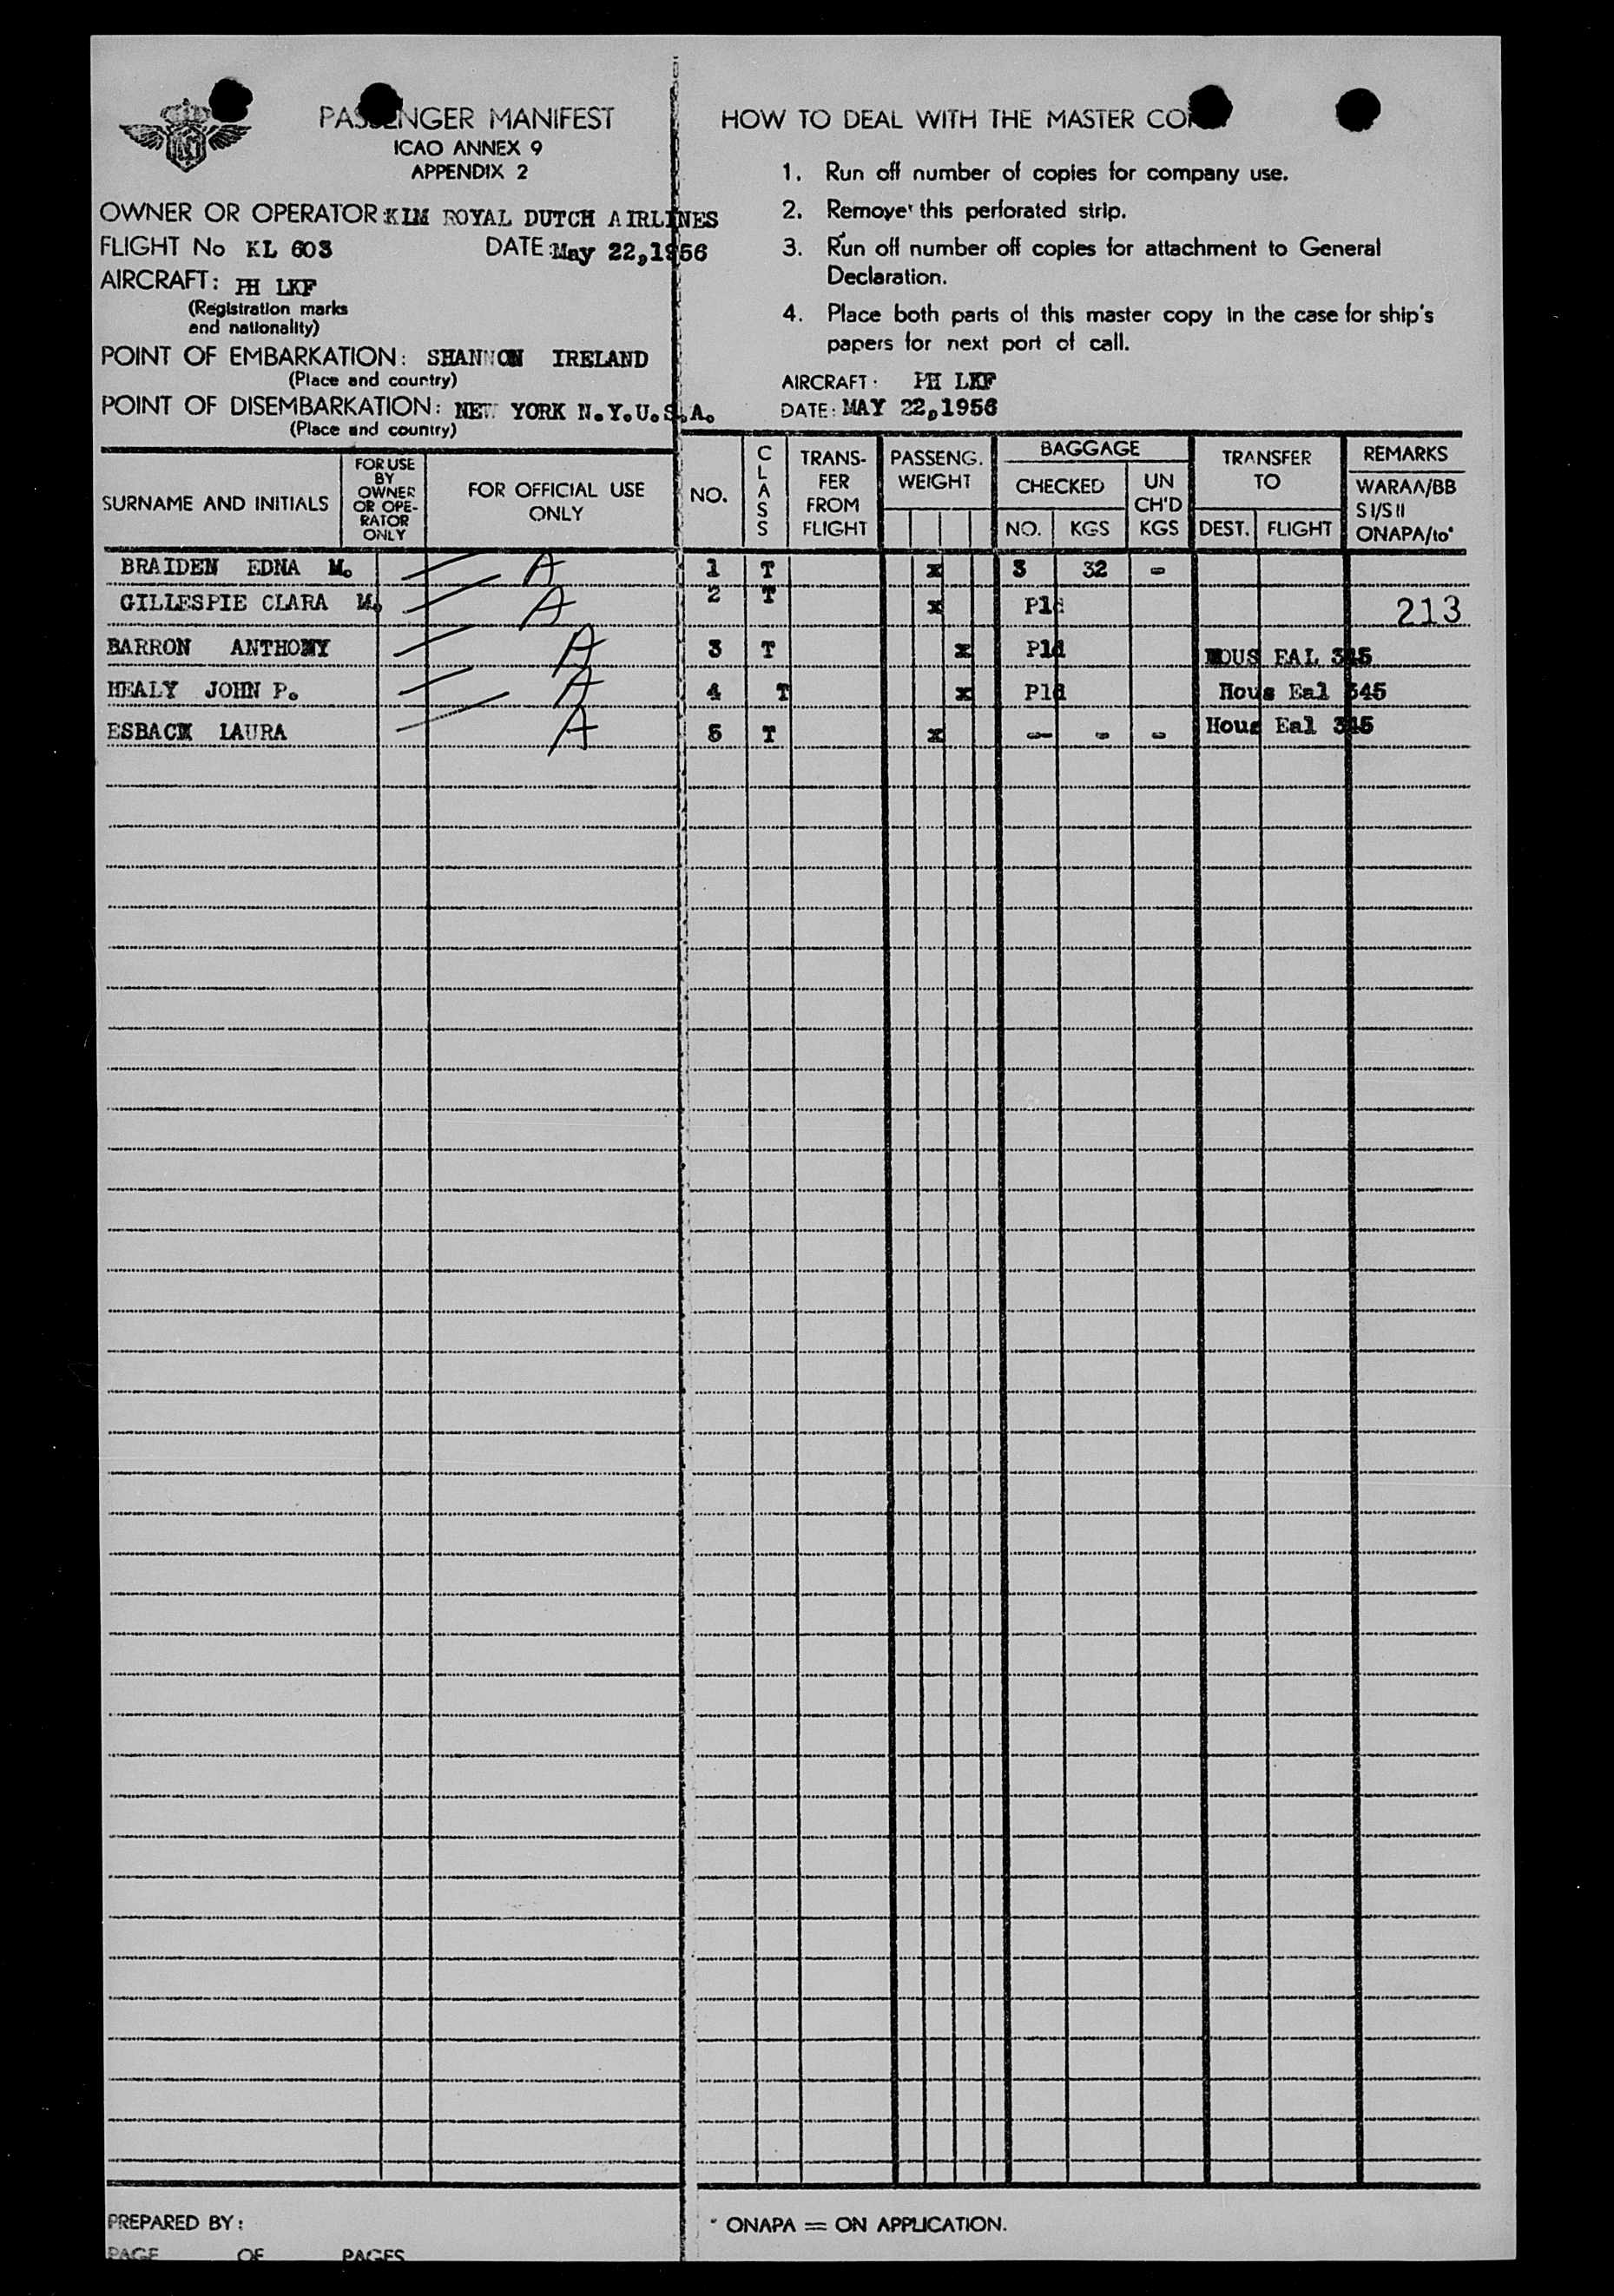 PASSENGER MANIFEST
ICAO ANNEX 9
APPENDIX 2
OWNER OR OPERATOR: KLM ROYAL DUTCH AIRLINES
FLIGHT No KL 603 DATE: May 22,1956
AIRCRAFT: PH LKF
(Registration marks
and nationality)
POINT OF EMBARKATION: SHANNON IRELAND
(Place and country)
POINT OF DISEMBARKATION: NEW YORK N.Y.U.S.A.
(Place and country)
HOW TO DEAL WITH THE MASTER COPY
1. Run off number of copies for company use.
2. Remove this perforated strip.
3. Run off number off copies for attachment to General
Declaration.
4. Place both parts of this master copy in the case for ship's
papers for next port of call.
AIRCRAFT: PH LKF
DATE: MAY 22,1956
SURNAME AND INITIALS
FOR USE
BY
OWNER
OR OPE-
RATOR
ONLY
FOR OFFICIAL USE
ONLY
NO.
CLASS
TRANS-
FER
FROM
FLIGHT
PASSENG.
WEIGHT
BAGGAGE
CHECKED
NO. KGS
UN
CH'D
KGS
TRANSFER
TO
DEST. FLIGHT
REMARKS
WARAA/BB
S I/S II
ONAPA/to*
BRAIDEN EDNA M. A 1 T x 3 32 -
GILLESPIE CLARA M. A 2 T x Pld 213
BARRON ANTHONY A 3 T x Pld HOUS EAL 345
HEALY JOHN P. A 4 T x Pld Hous Eal 345
ESBACK LAURA A 5 T x - - - Hous Eal 345
PREPARED BY:
PAGE OF PAGES
* ONAPA = ON APPLICATION.